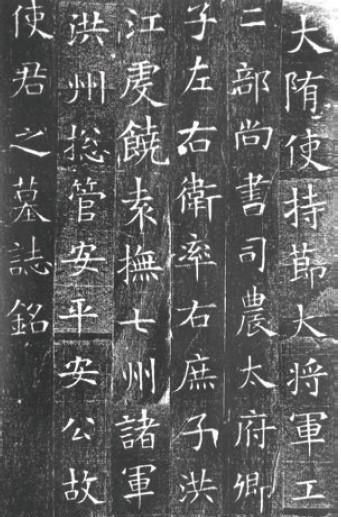 大隋使持莭大将軍工
二部尚書司農太府卿
子左右衛率右庶子洪
江虔饒袁撫七州諸軍
洪州捴管安平安公故
使君之墓誌銘